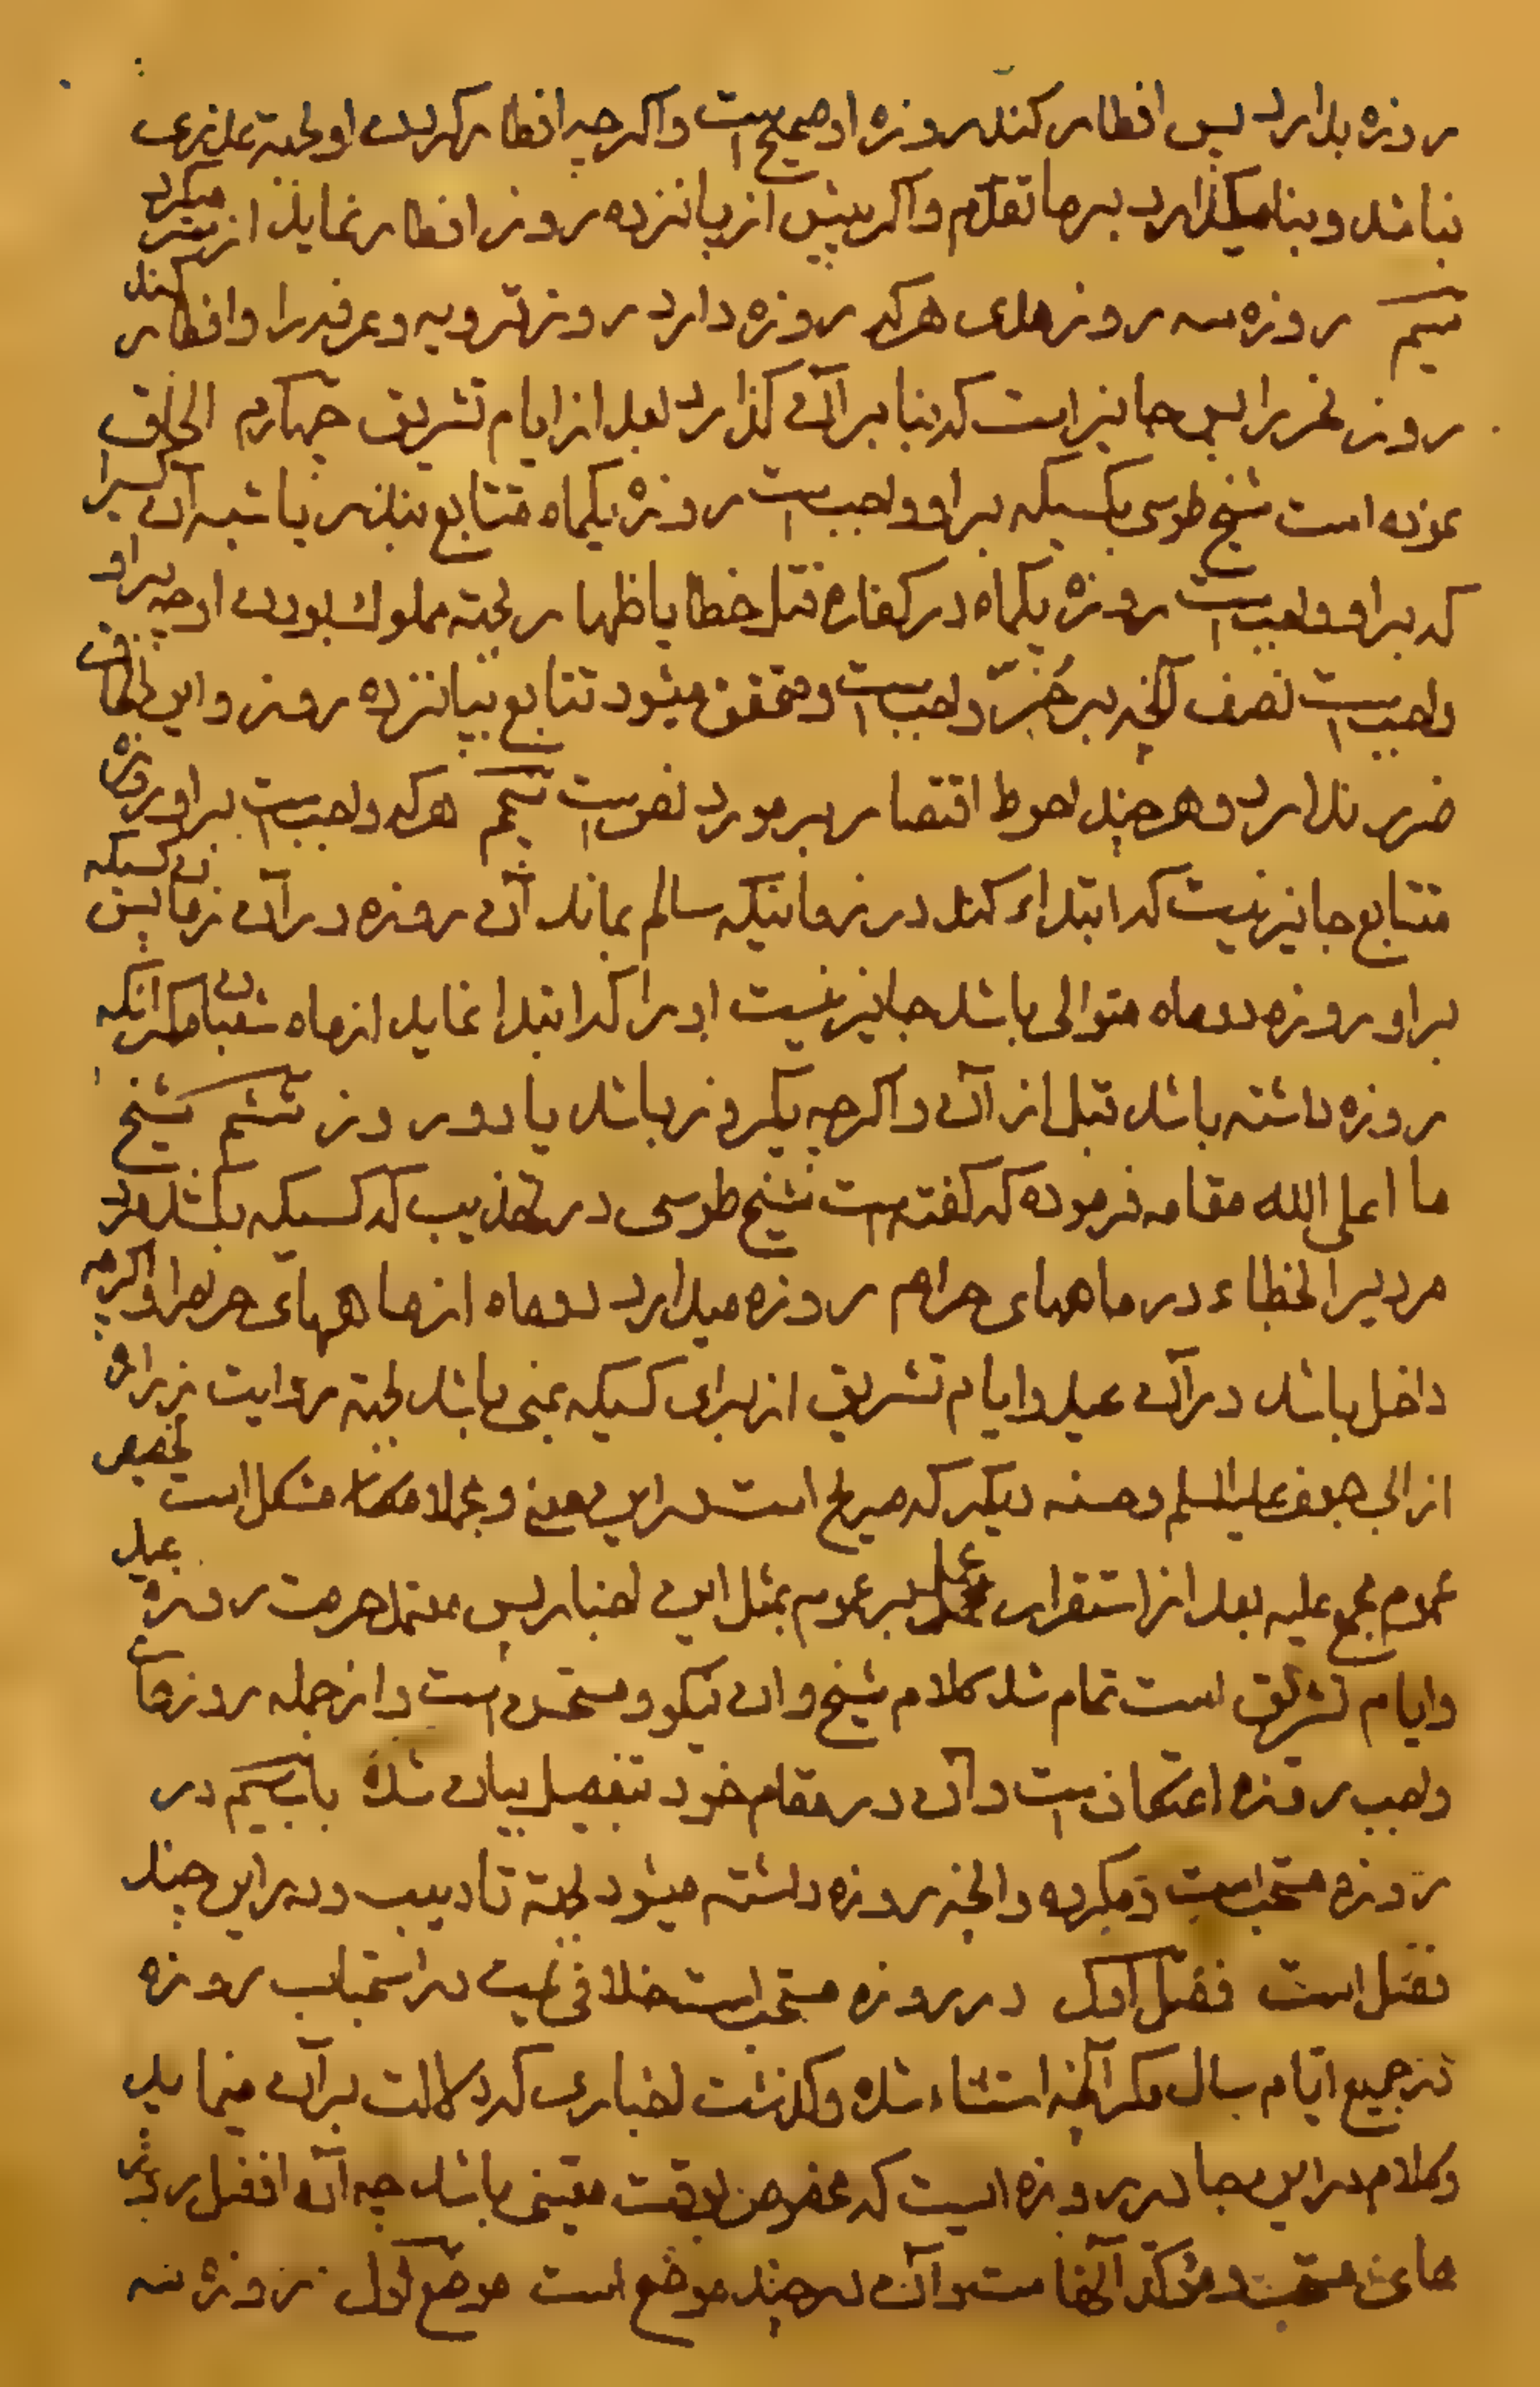 روزه بدارد پس افطار کند روزه او صحیح است و اگرچه افطار کردن او بجهة عذری
نباشد و بنا میگذارد بر ما تقدّم و اگر پیش از پانزده روز افطار نماید از سر میگیرد
سیم روزه سه روز هدی هرکه روزه دارد روز ترویه و عرفه را و افطار کند
روز نحر را پس جایز است که بنا بر آن گذارد بعد از ایام تشریق چهارم الحاق
نموده است شیخ طوسی بکسیکه بر او واجب است روزهٔ یکماه متتابع بنذر یا شبه آن کسیرا
که بر او واجب است روزهٔ یکماه در کفاره قتل خطا یا ظهار بجهة مملوک بودن او چه بر او
واجب است نصف آنچه بر حُرّ واجب است و محقق میشود تتابع بپانزده روز و این الحاق
ضرر ندارد و هرچند احوط اقتصار بر مورد نص است پنجم هرکه واجب است بر او روزه
متتابع جایز نیست که ابتداء کند در زمانیکه سالم نماند آن روزه در آن زمان پس کسیکه
بر او روزه دو ماه متوالی باشد جایز نیست او را که ابتدا نماید از ماه شعبان مگر آنکه
روزه داشته باشد قبل از آن و اگرچه یکروز باشد یا دو روز ششم شیخ
ما اعلی الله مقامه فرموده که گفته است شیخ طوسی در تهذیب که کسیکه بکشد مرد
مردیرا الخطاء در ماههای حرام روزه میدارد دو ماه از ماههای حرام را و اگرچه
داخل باشد در آن عید و ایام تشریق از برای کسیکه بمنی باشد بجهة روایت زراره
از ابی جعفر علیه السلم و حسنه دیگر که صریح است در این معنی و مشکل است تخصیص
عموم مجمع علیه بعد از استقرار عمل بر عموم بمثل این اخبار پس معتمد حرمت روزه عید
و ایام تشریق است تمام شد کلام شیخ و آن نیکو و مستحسن است و از جمله روزهای
واجب روزه اعتکاف است و آن در مقام خود بتفصیل بیان شده باب سیم در
روزه مستحب است و مکروه و آنچه روزه داشته میشود بجهة تادیب و در این چند
فصل است فصل اول در روزه مستحب است خلافی نیست در استحباب روزه
در جمیع ایّام سال مگر آنچه استثناء شده و گذشت اخباری که دلالت بر آن مینماید
و کلام در این جا در روزه ایست که مخصوص بوقت معینی باشد چه آن افضل روزه
های مستحب و مؤکد آنها است و آن در چند موضع است موضع اول روزهٔ سه